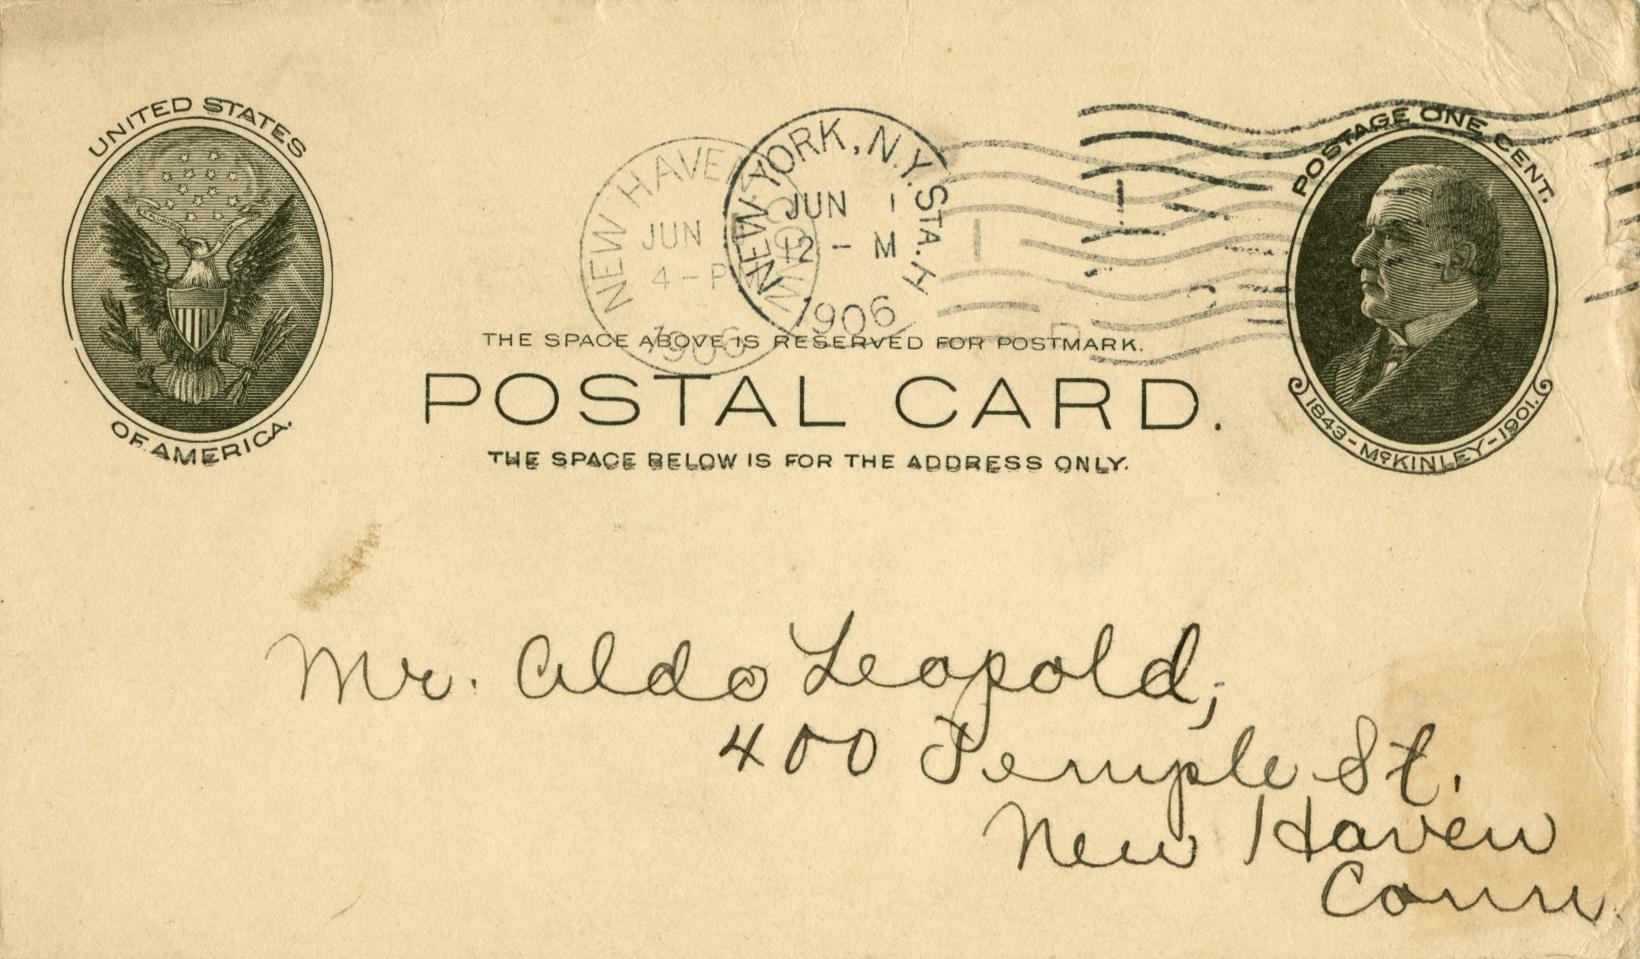 UNITED STATES
OF AMERICA.
NEW HAVEN CONN
JUN
4-P
1906
NEW YORK, N.Y. STA. H
JUN 1
12-M
1906
POSTAGE ONE CENT.
1843-McKINLEY-1901.
THE SPACE ABOVE IS RESERVED FOR POSTMARK.
POSTAL CARD.
THE SPACE BELOW IS FOR THE ADDRESS ONLY.
Mr. Aldo Leopold,
400 Temple St.
New Haven
Conn.